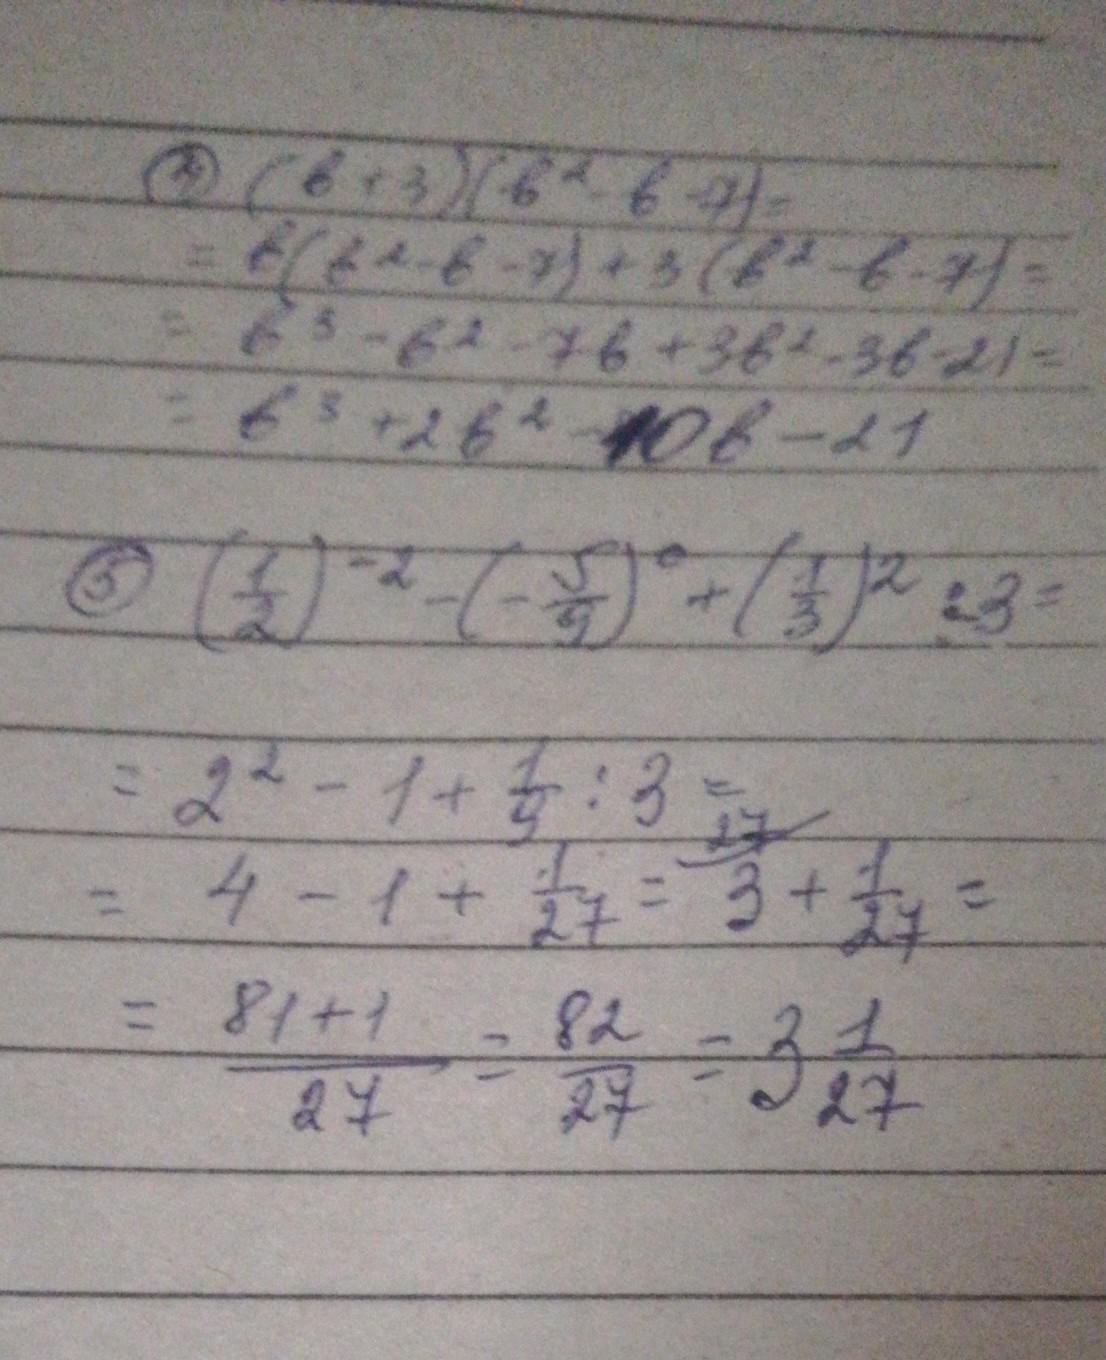 ④ (b+3)(b²-b-7)=
= b(b²-b-7)+3(b²-b-7)=
= b³-b²-7b+3b²-3b-21=
= b³+2b²-10b-21
⑤ (1/2)⁻² - (-5/9)⁰ + (1/3)² :3=
= 2² - 1 + 1/9 : 3 =
27
= 4 - 1 + 1/27 = 3 + 1/27 =
= 81+1/27 = 82/27 = 3 1/27